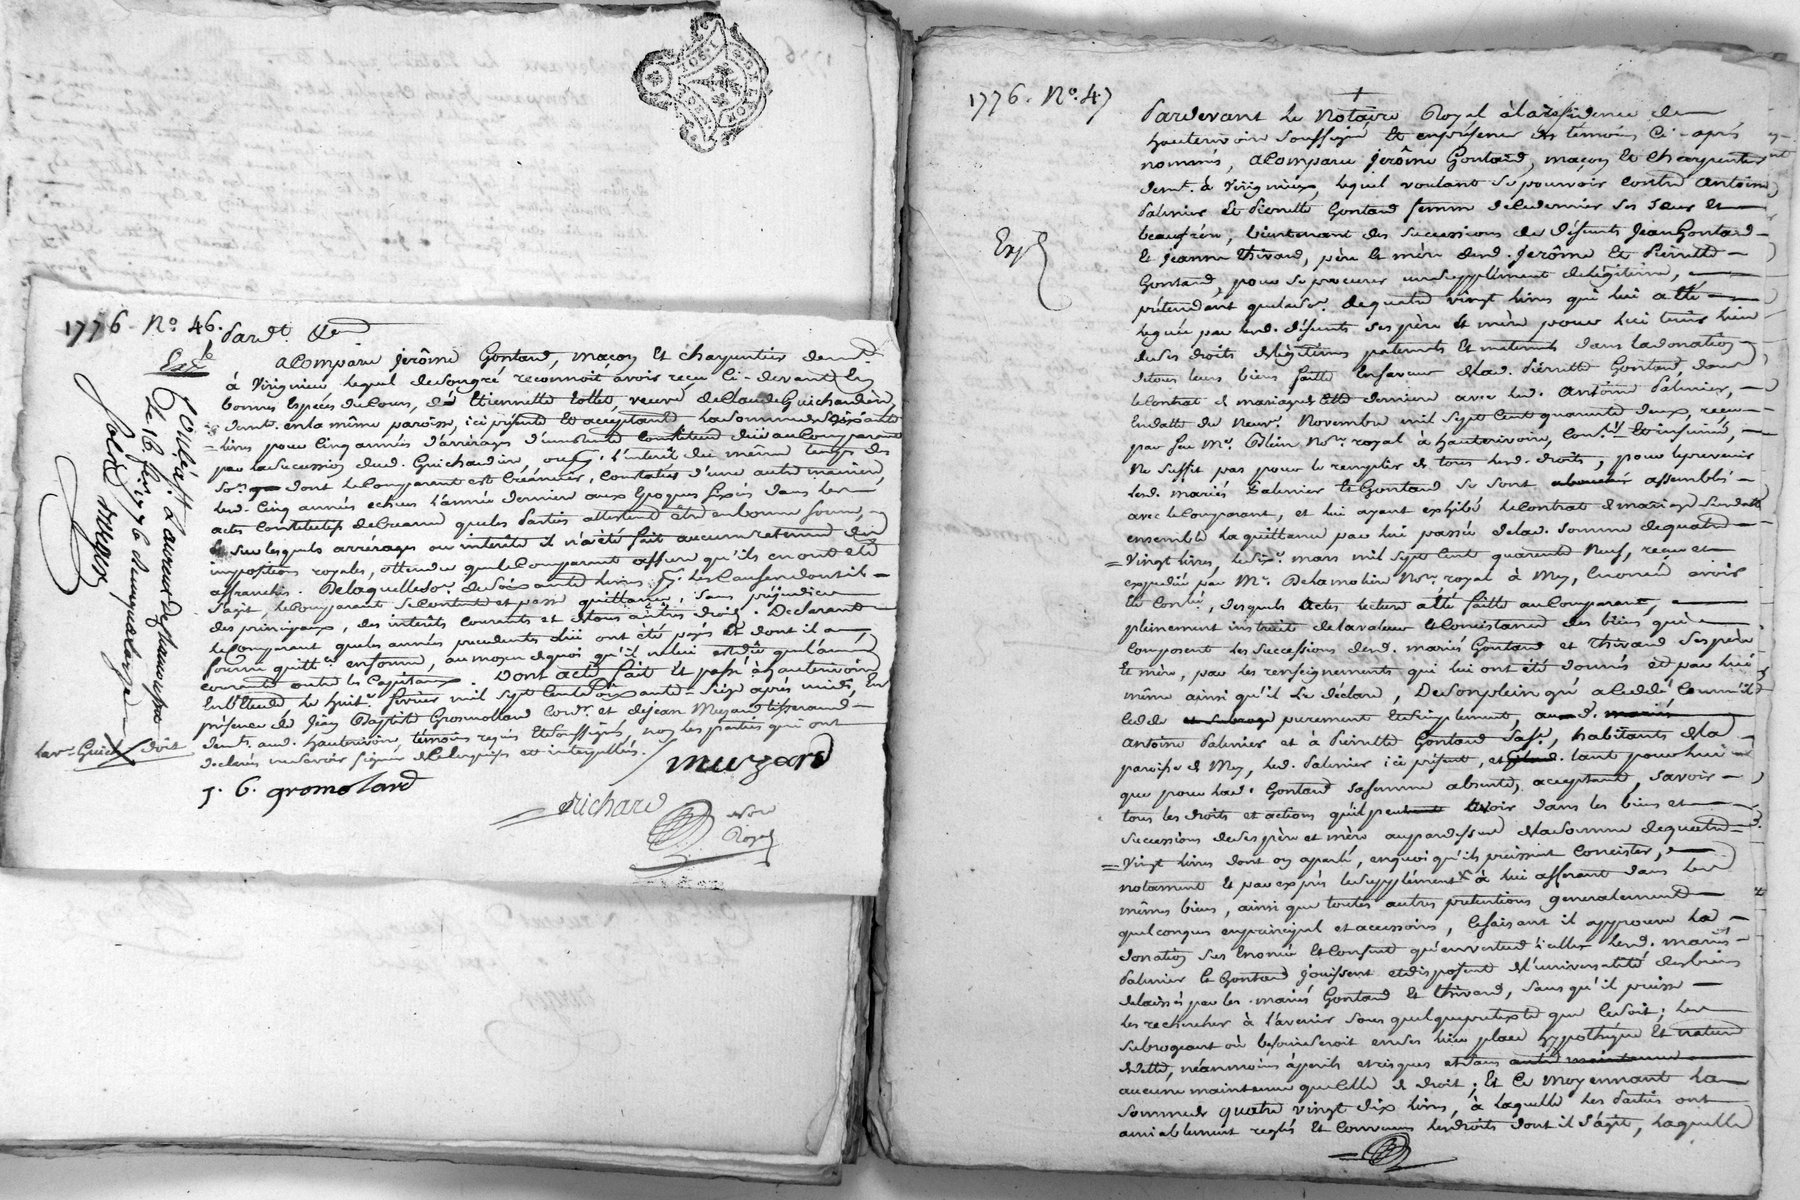 1776. N°. 46. Pard.t &c.
Exp.é
a Comparu Jerôme Gontard, maçon Et charpentier dem.t
à Virignieu, lequel de son gré reconnoit avoir reçu Ci-devant En
bonnes Espèces de Cours, de Etiennette veuve de Claude Guichardin,
dem.t en la même paroisse, ici présente Et acceptante la somme de soixante
livres pour Cinq années d'arrérages d'une rente Constituée düe au Comparant
par la succession dud. Guichardin, ou l'interêt du même temps des
so.es dont le Comparant est Créancier, Constatés d'une autre manière,
lesd. Cinq années echues l'année dernière aux Epoques fixées dans les
actes Constitutifs de Créance que les Parties attestent être en bonne forme,
sur lesquels arrérages ou interêts il n'a été fait aucune retenue des
impositions royales, attendu que le Comparant assure qu'ils en ont été
affranchis. De laquelle so.e de soixante livres p.r les Causes dont il
s'agit, le Comparant se Contente et passe quittance, sans préjudice
des principaux, des interêts courants et de tous autres droits. Declarant
le Comparant que les années precedentes lui ont été payés Et dont il a
fourni quitt.ce en forme, au moyen de quoi qu'il ne lui est dû que l'année
courante outre les Capitaux. Dont acte fait Et passé à hauterivoire
En l'Etude le huit.e février mil sept Cent soixante-seize après midi, En
présence de Jean Baptiste Gromollard Cord.r et de Jean Muzard tisserand
dem.t aud. hauterivoire temoins requis Et soussignés, non les parties qui ont
declaré ne savoir signer de Ce Enquises et interpellées.
muzard
J. B. gromolard
Richard
Not.
Royal
Controllé à S.t Laurent De Chamousset
Ce 16. fev. 1776
la v.e Guich. doit
1776. N°. 47
Pardevant Le Notaire Royal à la résidence de
hauterivoire soussigné Et en présence des témoins Ci-après
nommés, a Comparu Jerôme Gontard, maçon Et Charpentier
dem.t à Virignieux, lequel voulant se pourvoir contre Antoine
Palmier Et Pierrette Gontard femme de Ce dernier ses sœur Et
beaufrère, lieutenant des successions de défunts Jean Gontard
Et Jeanne Thivard, père Et mère dud. Jerôme Et Pierrette
Gontard, pour se procurer un supplément de légitime,
prétendant que la so.e de quatre vingt livres qui lui a été
leguée par lesd. défunts ses père Et mère pour lui tenir lieu
de ses droits de légitimes paternels Et maternels dans la donation
de tous leurs biens faite En faveur de lad. Pierrette Gontard, dans
le Contrat de mariage de cette dernière avec led. Antoine Palmier,
En datte du Neuv.e Novembre mil sept Cent quarante deux, reçu
par feu M.e Blein Not.re royal à hauterivoire, Con.té Et insinué,
Ne suffit pas pour le remplir de tous lesd. droits, pour le prevenir
lesd. mariés Palmier Et Gontard se sont assemblés
avec le Comparant, et lui ayant exhibé le Contrat de mariage susdatté
ensemble la quittance par lui passée de lad. somme de quatre
Vingt livres, le Six.e mars mil sept Cent quarente Neuf, reçue et
expediée par M.e Delamolière Not.re royal à Mey,
desquels Actes lecture a été faitte au Comparant,
pleinement instruit de la valeur Et Consistance des biens qui
composent les successions desd. mariés Gontard et Thivard ses père
Et mère, par les renseignements qui lui ont été donnés et par lui
même ainsi qu'il le déclare, De son plein gré a Cedé Comme il
Cede purement Et simplement, aud.
Antoine Palmier et à Pierrette Gontard sa fe., habitants de la
paroisse de Mey, led. Palmier ici présent, et tant pour lui
que pour lad. Gontard sa femme absente, acceptant, savoir
tous les droits et actions qu'il peut avoir dans les biens et
successions de ses père et mère au pardessus de la somme de quatre
Vingt livres dont on a parlé, en quoi qu'ils puissent Consister,
notament Et par exprès le supplément à lui afferant dans les
mêmes biens, ainsi que toutes autres pretentions generalement
quelconques en principal et accessoires, Ce faisant il approuve la
donation sus Enoncée Et Consent qu'en vertu d'icelle lesd. mariés
Palmier Et Gontard jouissent et disposent de l'universalité des biens
delaissés par les mariés Gontard Et Thivard, sans qu'il puisse
les rechercher à l'avenir sous quelque pretexte que Ce soit; les
subrogeant où besoin seroit en ses lieu place hypothèque Et
de dette, néanmoins à perils et risques et sans
aucune maintenue que Celle de droit; Et Ce Moyennant la
somme de quatre vingt dix livres, à laquelle les Parties ont
amiablement reglés Et Convenus les droits dont il s'agit, laquelle